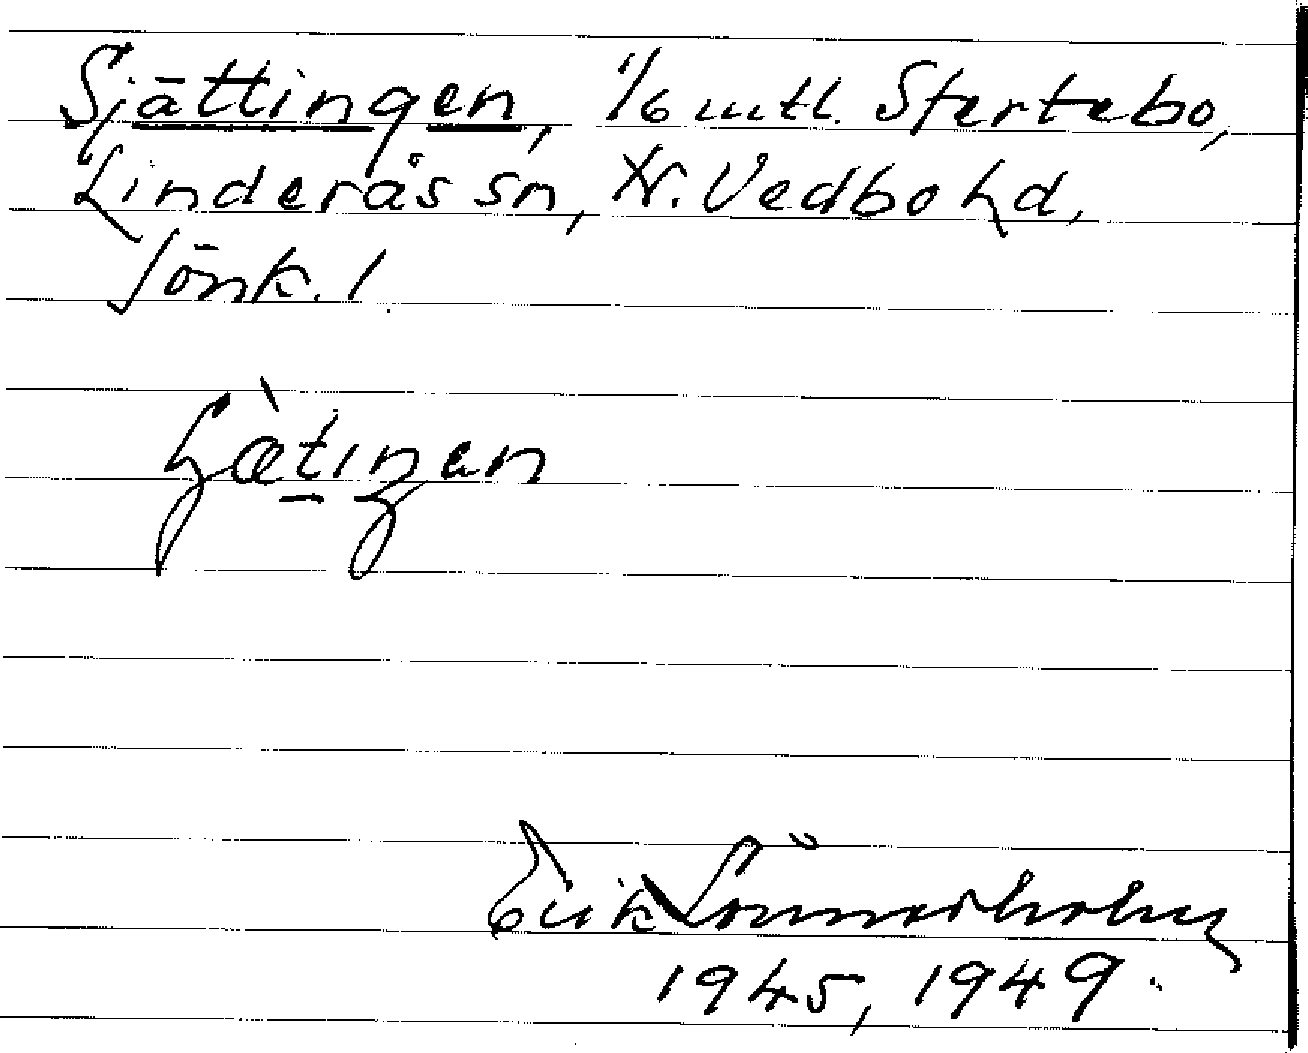 Sjättingen, 1/6 mtl. Stertebo,
Linderås sn, N. Vedbo hd,
Jönk. l
Erik Lönnerholm
1945, 1949.